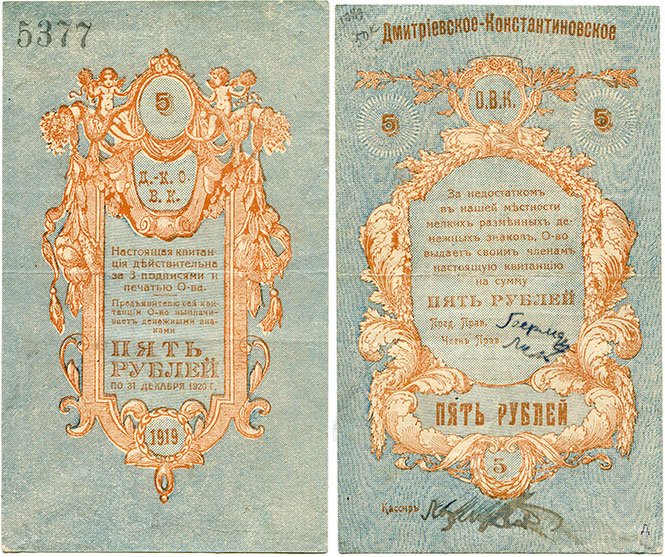 5377
5
Д.-К. О.
В. К.
Настоящая квитан
ція дѣйствительна
за 3 подписями и
печатью О-ва.
Предъявителю сей кви
танціи О-во выплачи-
ваетъ денежными зна-
ками
ПЯТЬ
РУБЛЕЙ
ПО 31 ДЕКАБРЯ 1920 Г.
1919
50к
Дмитріевское-Константиновское
О.В.К.
5
5
За недостаткомъ
въ нашей мѣстности
мелкихъ размѣнныхъ де-
нежныхъ знаковъ, О-во
выдаетъ своимъ членамъ
настоящую квитанцію
на сумму
ПЯТЬ РУБЛЕЙ
Пред. Прав.
Членъ Прав.
ПЯТЬ РУБЛЕЙ
5
Кассиръ
Д